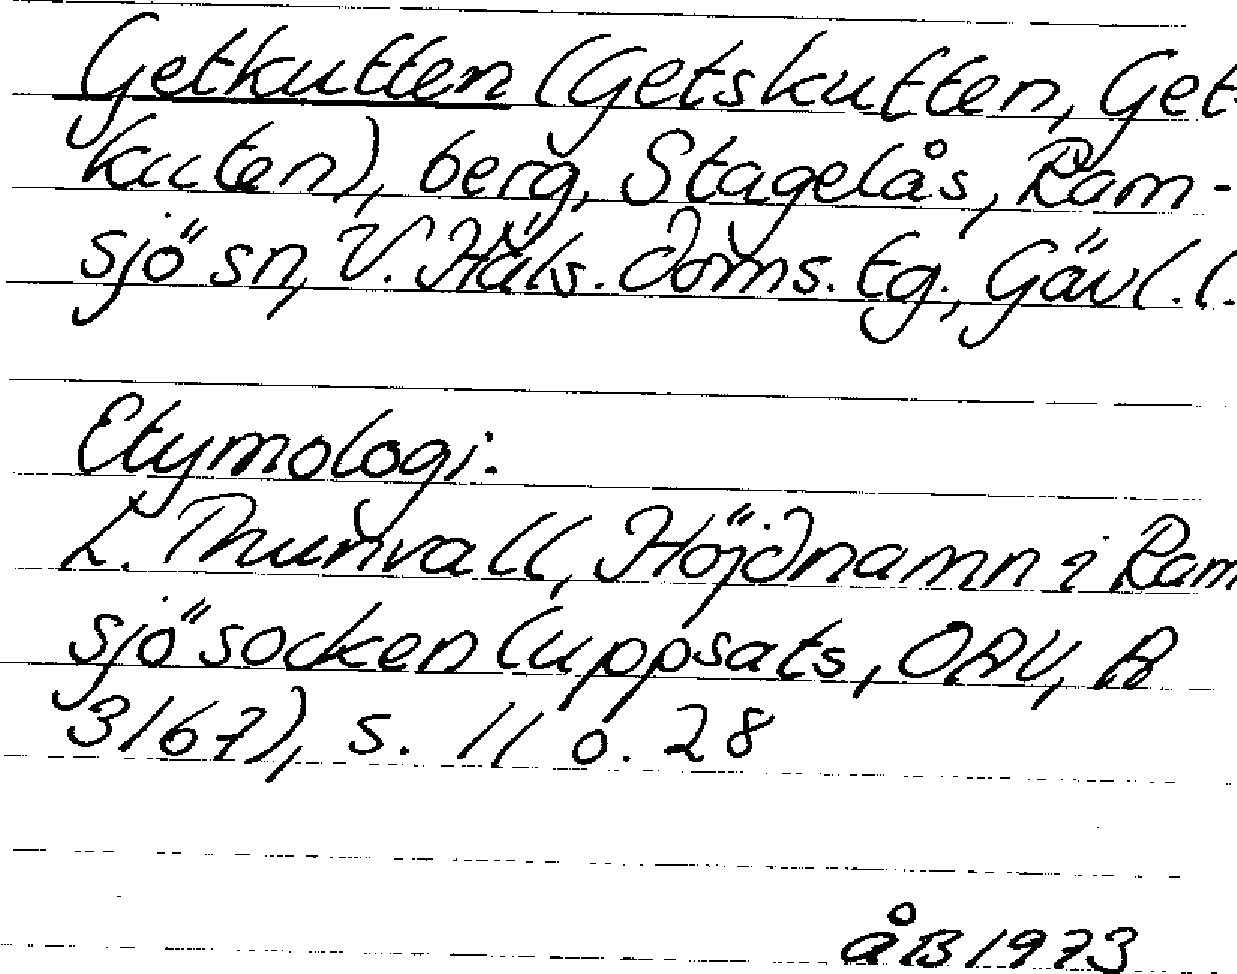 Getkutten (Getskutten, Get-
kuten), berg, Stagelås, Ram-
sjö sn, V. Häls. doms. tg., Gävl. l.
Etymologi:
L. Thunvall, Höjdnamn i Ram
sjö socken (uppsats, OAU, A
3167), s. 11 o. 28
åB 1973